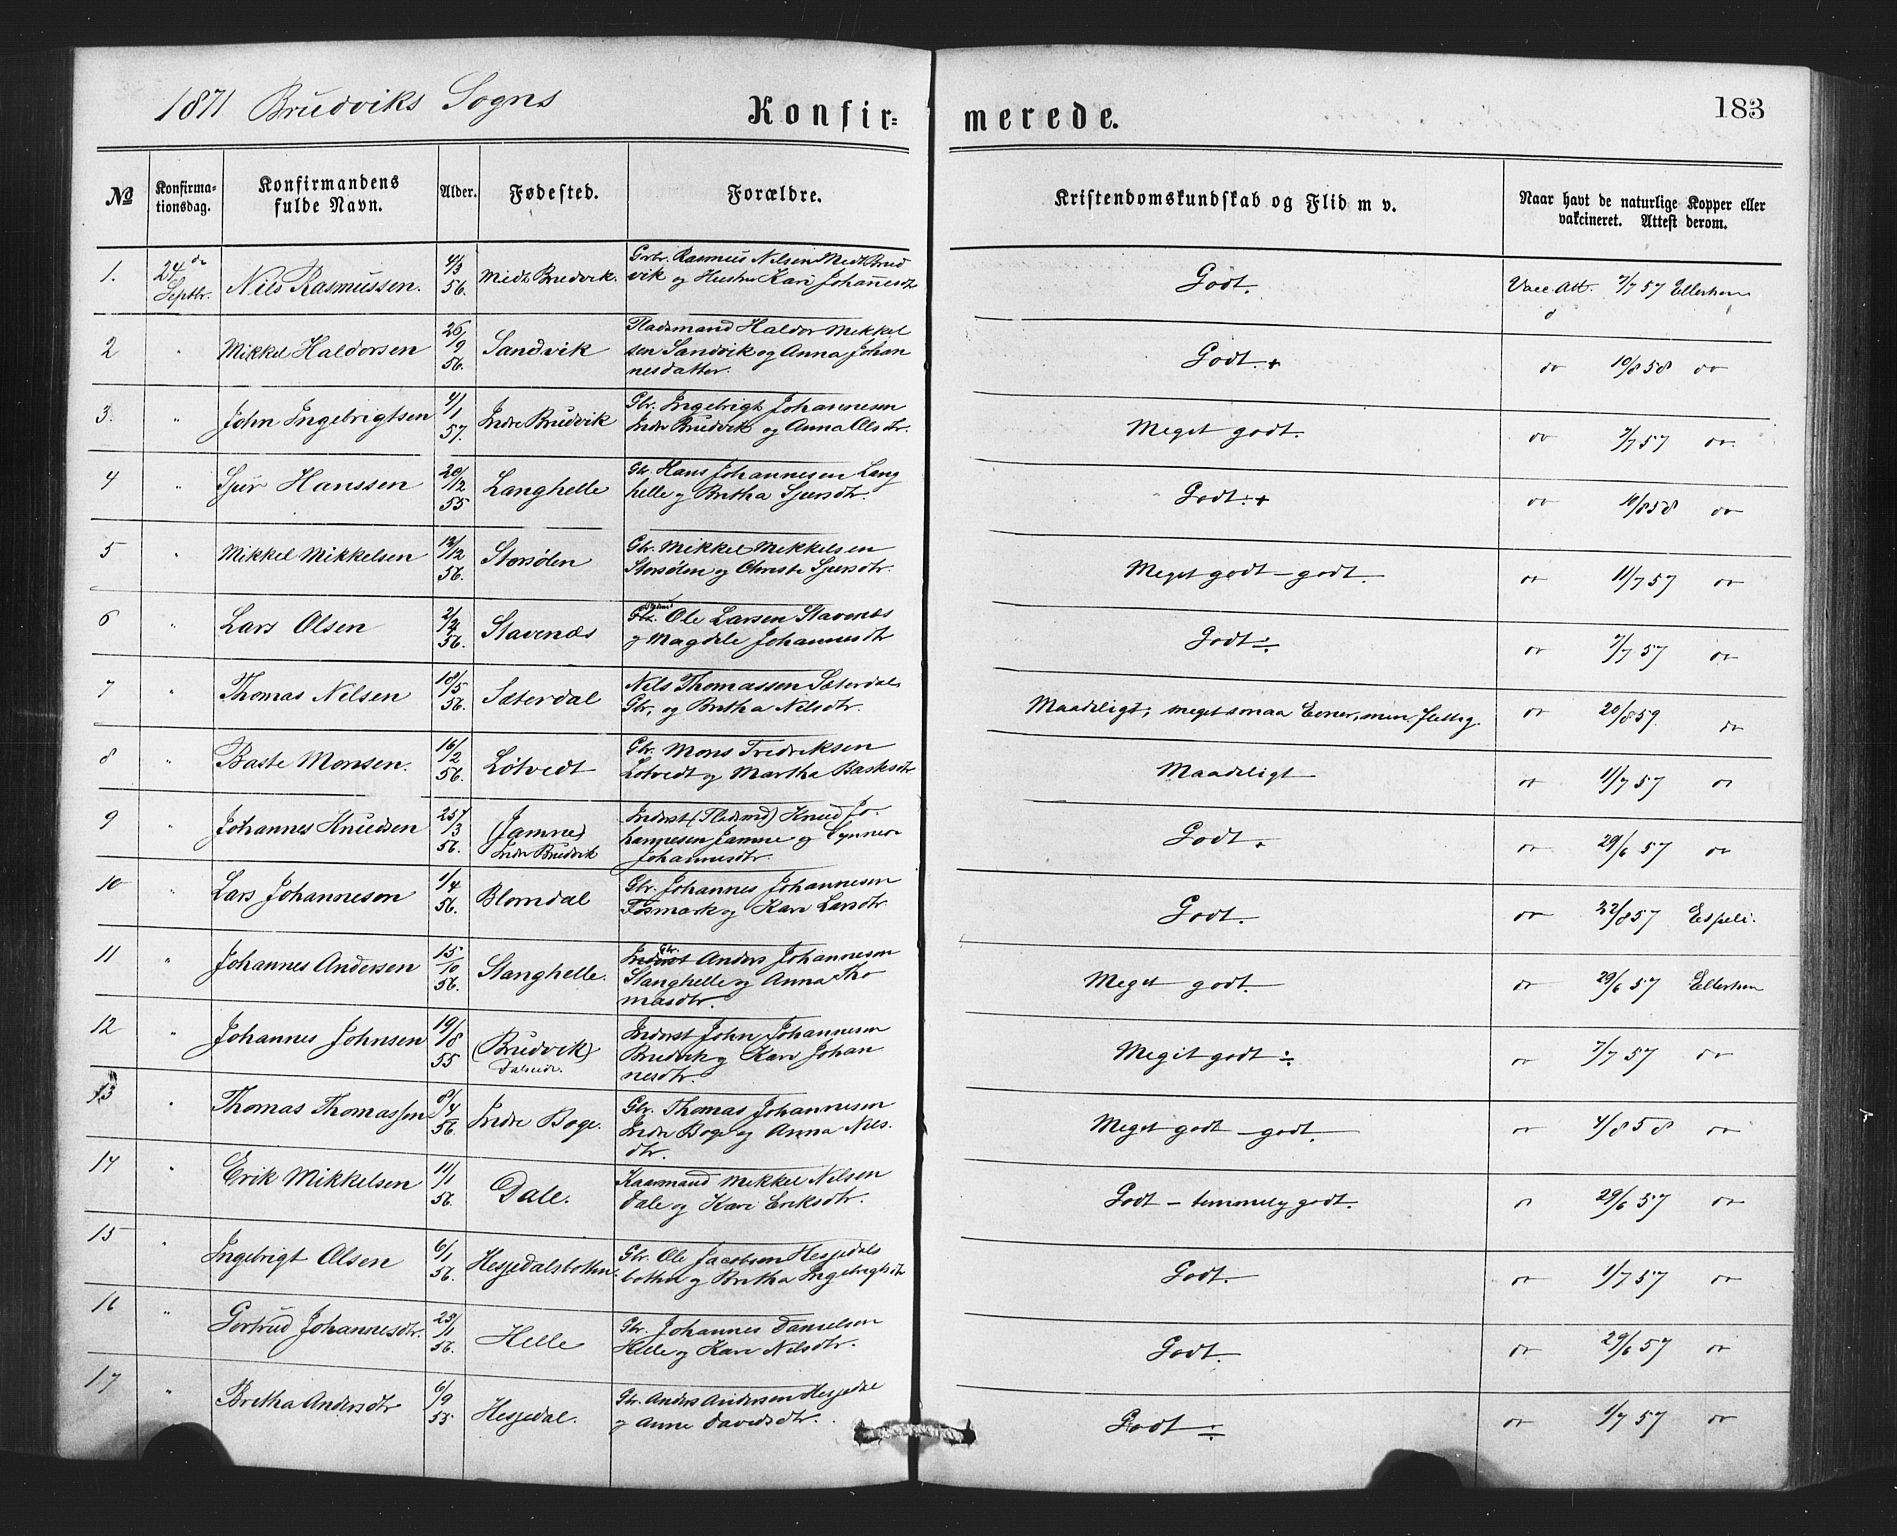 1871 Brudviks Sogns
Konfir= merede.
183
No Konfirma- tionsdag. Konfirmandens fulde Navn. Alder. Fødested. Forældre. Kristendomskundskab og Flid m v. Naar havt de naturlige Kopper eller vakcineret. Attest derom.
1. 24de Septbr. Nils Rasmussen. 4/3 56. Midt Brudvik. Gbr. Rasmus Nilsen Midt Brud
vik og Hustru Kari Johannesdtr Godt. Vacc. Att. 7/7 57
2 " Mikkel Haldorsen 26/9 56. Sandvik Pladsmand Haldor Mikkel
sen Sandvik og Anna Johan
nesdatter. Godt.+ do 10/8 58 do
3. " John Ingebrigtsen 4/1 57. Indre Brudvik Gbr. Ingebrigt Johannesen
Indre Brudvik og Anna Olsdtr. Meget godt. do 7/7 57 do
4 " Sjur Hanssen 20/12 55 Langhelle Gbr Hans Johannesen Lang
helle og Britha Sjursdtr. Godt.++ do 10/8 58 do
5 " Mikkel Mikkelsen 12/12 56. Storsølen Gbr. Mikkel Mikkelsen
Storsølen og Christi Sjursdtr. Meget godt - godt. do 11/7 57 do
6 " Lars Olsen 56. Stavenæs Ole Larsen Stavenæs
og Magdele Johannesdtr Godt ÷ do 7/7 57 do
7 " Thomas Nilsen 18/5 56. Sæterdal Nils Thomassen Sæterdal
Gbr, og Britha Nilsdtr. Maadeligt; meget smaa Evner, men flittig. do 20/8 59. do
8 " Baste Monsen. 16/2 56. Lotvedt Gbr. Mons Fredriksen
Lotvedt og Martha Bastesdtr Maadeligt do 11/7 57 do
9 " Johannes Knudsen 25/3 56. (Jamne)
Indre Brudvik Inderst (Pladsmd) Knud Jo-
hannesen Jamne og
Johannesdtr. Godt. do 29/6 57 do
10 " Lars Johannesen 1/4 56. Blomdal Gbr. Johannes Johannesen
Fosmark og Kari Larsdtr Godt. do 22/8 57 Espeli.
11 " Johannes Andersen 15/10 56. Stanghelle. Gbr.
Inderst Anders Johannesen
Stanghelle og Anna Tho
masdtr. Meget godt. do 29/6 57
12 " Johannes Johnsen 19/8 55 (Brudvik) Inderst John Johannesen
Brudvik og Kari Johan
nesdtr. Meget godt ÷ do 7/7 57 do
13 " Thomas Thomassen 8/4 56. Indre Boge. Gbr. Thomas Johannesen
Indre Boge og Anna Nils.
dtr. Meget godt - godt. do 4/8 58 do
14 " Erik Mikkelsen 11/1 56. Dale. Kaarmand Mikkel Nilsen
Dale og Kari Eriksdtr. Godt - temmelig godt. do 29/6 57 do
15 " Ingebrigt Olsen 6/1 56. Hesjedalsbotten Gbr. Ole Jacobsen Hesjedals
botten og Britha Ingebrigtsdtr Godt. do 1/7 57 do
16 " Gertrud Johannesdtr. 56. Helle Gbr. Johannes Danielsen
Helle og Kari Nilsdtr. Godt. do 29/6 57 do
17 " Britha Andersdtr 6/9 55 Hesjedal. Gbr. Anders Andersen Hesjedal
og Anne Davidsdtr. Godt ÷ do 1/7 57 do